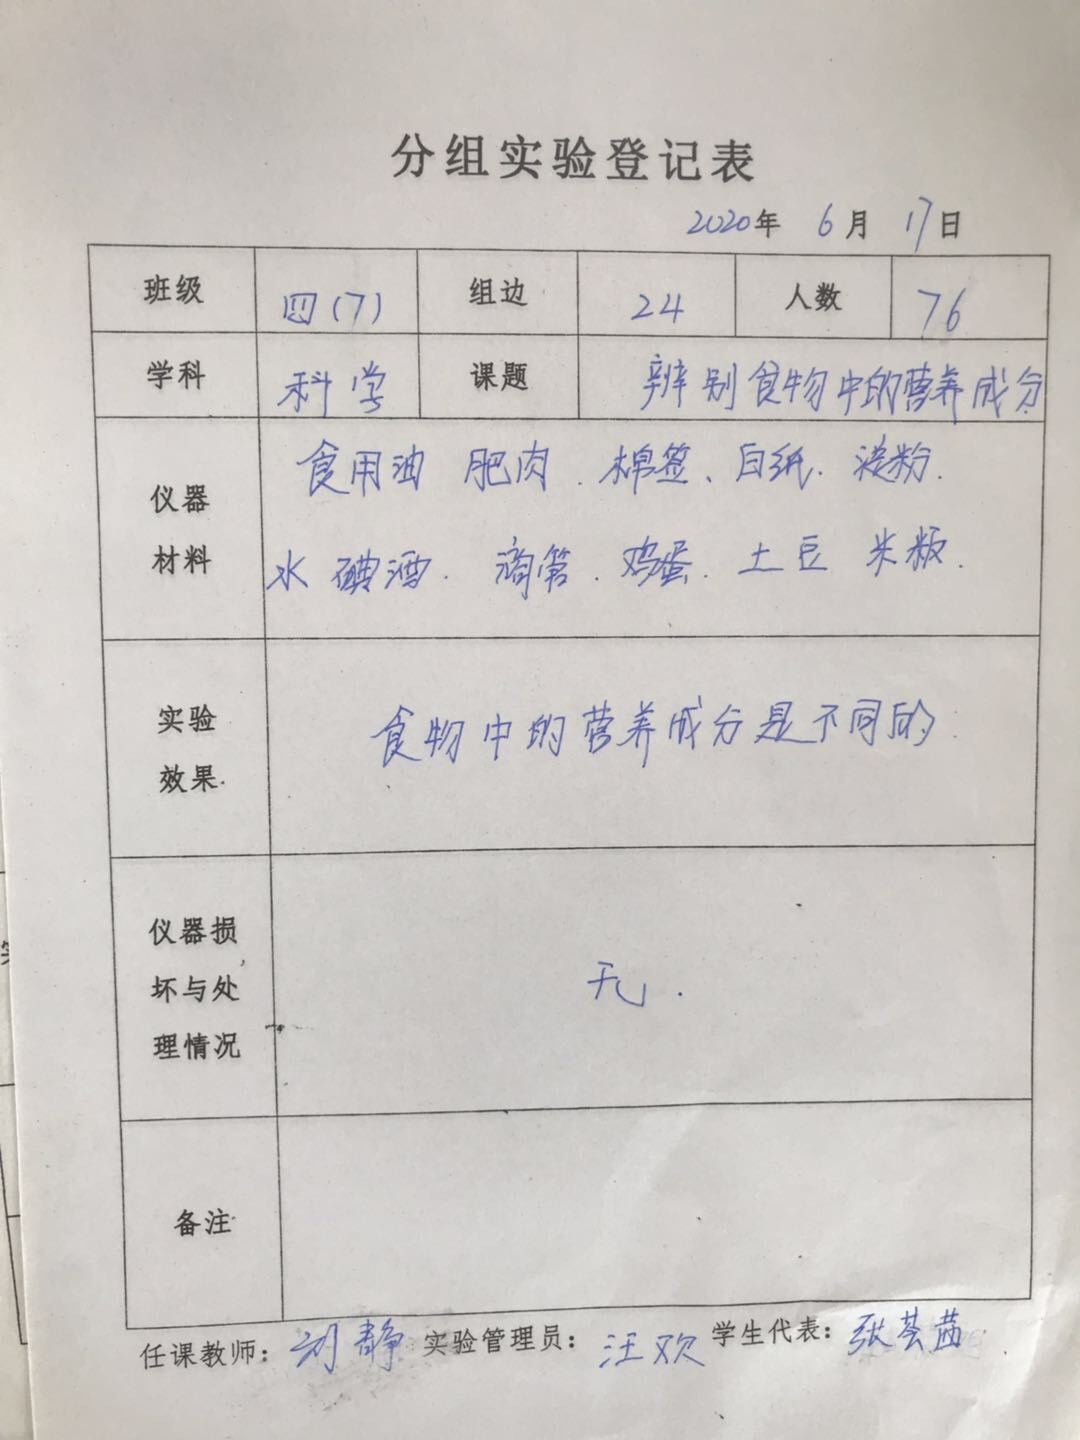 分组实验登记表
2020年 6月 17日
班级 四(7) 组边 24 人数 76
学科 科学 课题 辨别食物中的营养成分
仪器
材料
食用油 肥肉. 棉签、白纸. 淀粉.
水 碘酒. 滴管. 鸡蛋. 土豆 米板.
实验
效果.
食物中的营养成分是不同的.
仪器损
坏与处
理情况
无.
备注
任课教师: 刘静 实验管理员: 汪欢 学生代表: 张芸茜